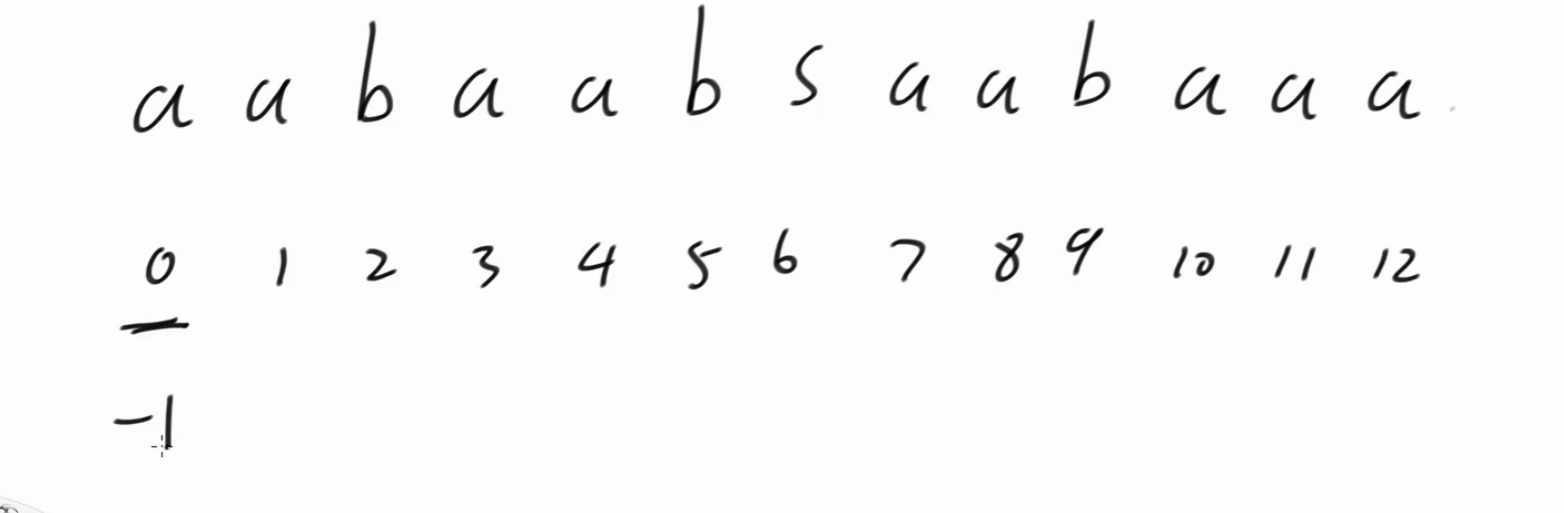 a a b a a b s a a b a a a
0 1 2 3 4 5 6 7 8 9 10 11 12
-1